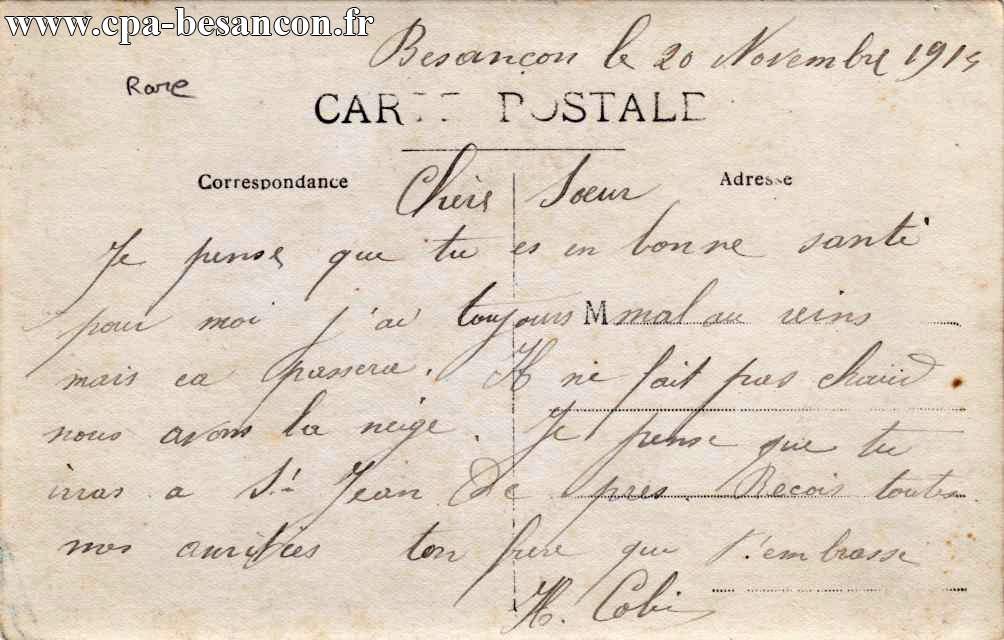 www.cpa-besancon.fr
Besançon le 20 Novembre 1914
Rare
CARTE POSTALE
Correspondance
Adresse
Chère Soeur
Je pense que tu es en bonne santé
pour moi j'ai toujours M mal au reins
mais ca passera. Il ne fait pas chaud
nous avons la neige. Je pense que tu
iras a St Jean De pres. Recois toutes
mes amitiées ton frere qui t'embrasse
H.